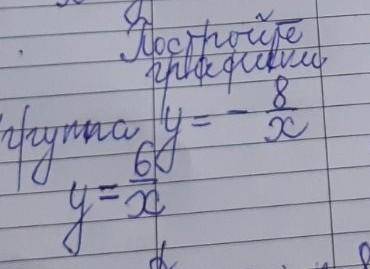 Постройте
графики
группа y = - 8/x
y = 6/x